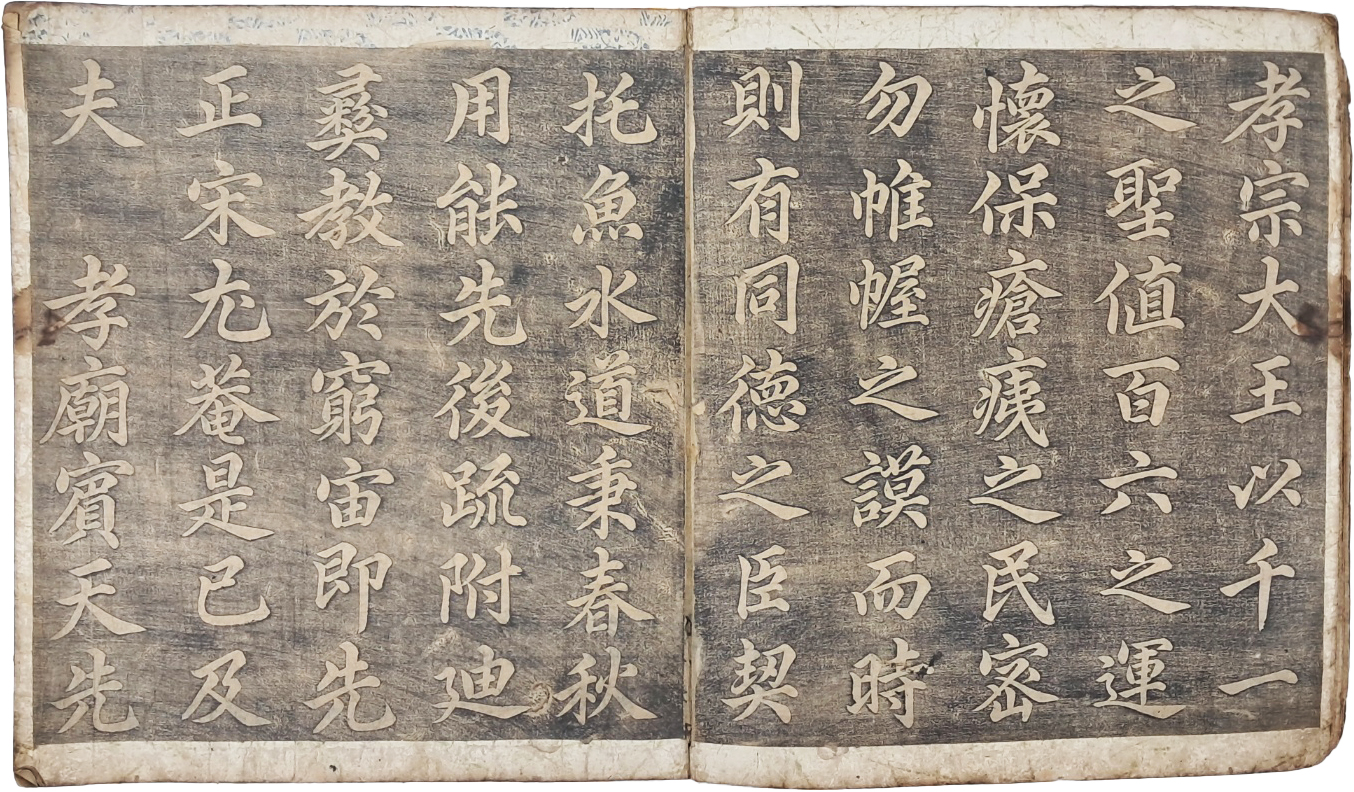 孝宗大王以千一
之聖値百六之運
懷保瘡痍之民密
勿帷幄之謨而時
則有同德之臣契
托魚水道秉春秋
用能先後疏附迪
彛教於窮宙即先
正宋尤菴是已及
夫　孝廟賓天先